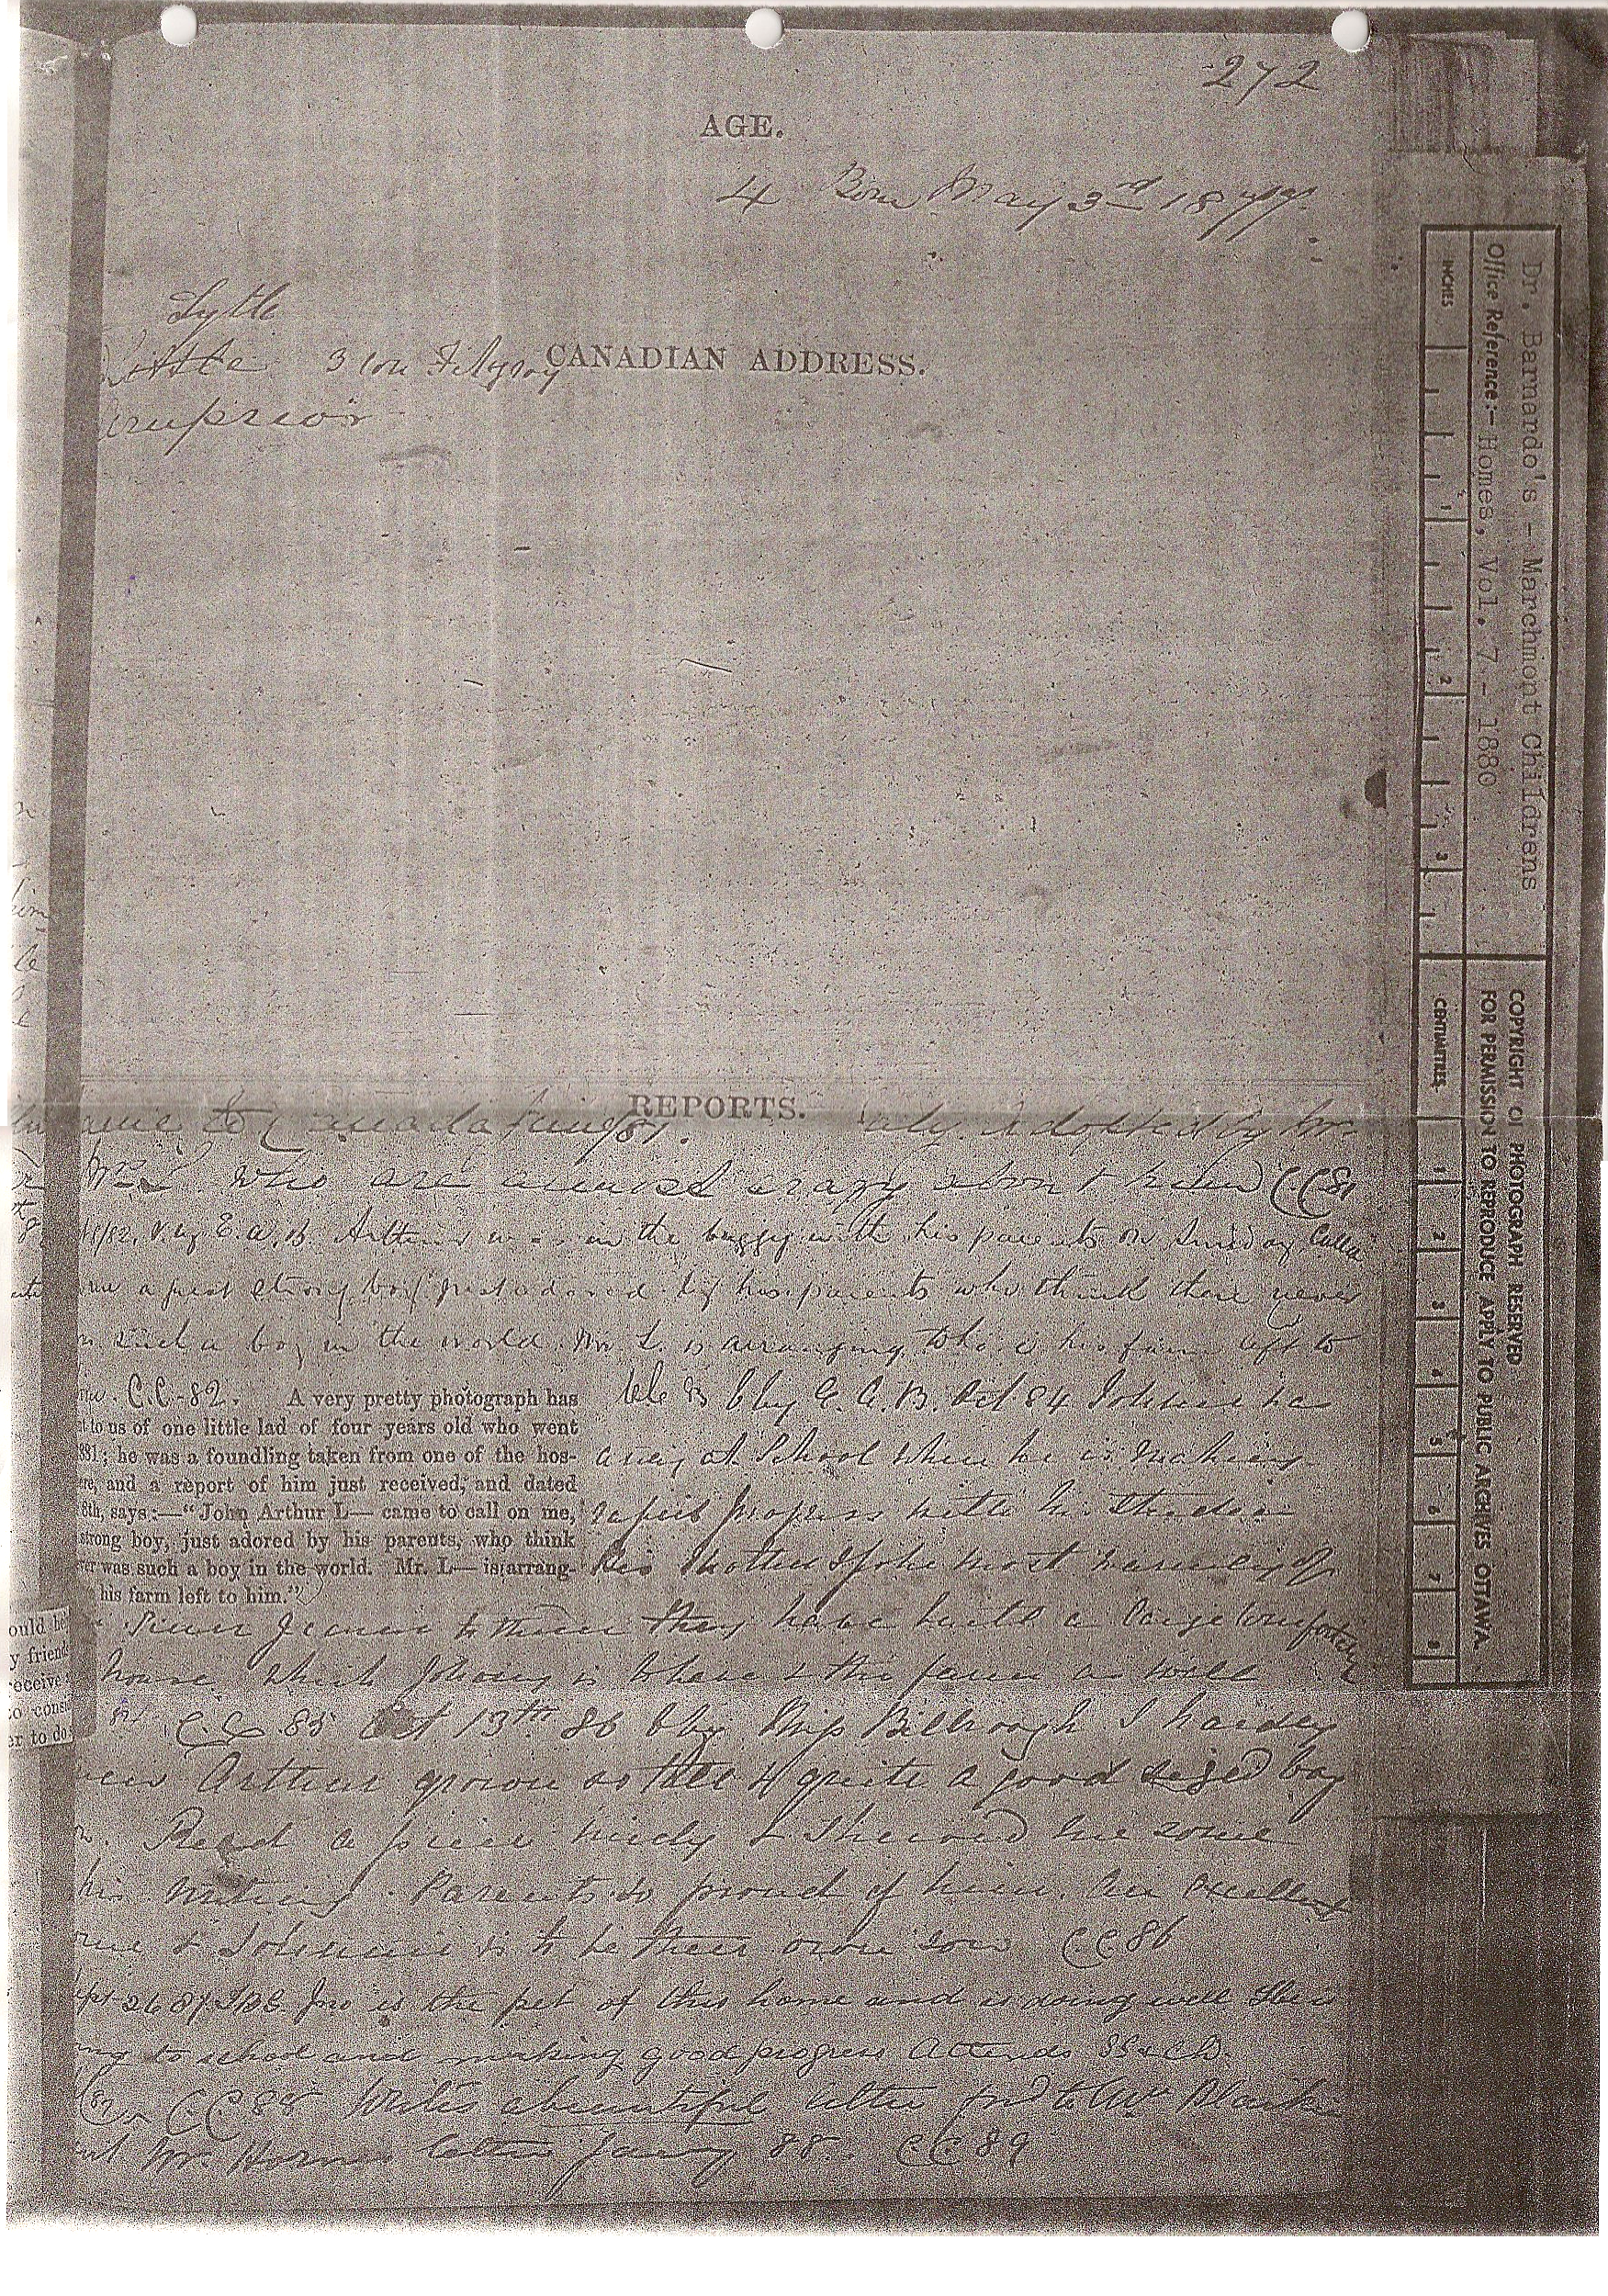 272
AGE.
4 Born May 3rd 1877.
Lytle
3 Con Fitzroy
CANADIAN ADDRESS.
REPORTS.
came to Canada June 81. adopted by Mr
Mrs L who are almost crazy about him CC81
/82. V by E.A.B. Arthur was in the buggy with his parents on Sunday Called
me a great strong boy, just adored by his parents who think there never
such a boy in the world. Mr L. is arranging to have his farm left to
C.C-82. A very pretty photograph has
to us of one little lad of four years old who went
881; he was a foundling taken from one of the hos-
re, and a report of him just received, and dated
8th, says:—"John Arthur L— came to call on me,
strong boy, just adored by his parents, who think
ver was such a boy in the world. Mr. L— is arrang-
his farm left to him."
by E.A.B. Oct 84 Johnnie
away at School where he is making
rapid progress with his studies
His Mother spoke most warmly of
they have built a large comfortable
house which Johnny is to have & the farm as well
C.C. 85 Oct 13th 86 by Miss Bilbrough I hardly
knew Arthur grown so tall & quite a good sized boy
Read a piece nicely & showed me some
his writing. Parents so proud of him. An excellent
& Johnnie is to be their own son CC86
26 87 Jno is the pet of this home and is doing well He is
ng to school and making good progress Attends SS & Ch.
C.C 88 Writes a beautiful letter
Mr Horne's letter 88. CC 89
ould he
y friend
eceive
o consi
er to do
Dr. Barnardo's - Marchmont Childrens
Office Reference:- Homes, Vol. 7 - 1880
INCHES 1 2 3
COPYRIGHT OF PHOTOGRAPH RESERVED
FOR PERMISSION TO REPRODUCE APPLY TO PUBLIC ARCHIVES OTTAWA
CENTIMETRES 1 2 3 4 5 6 7 8